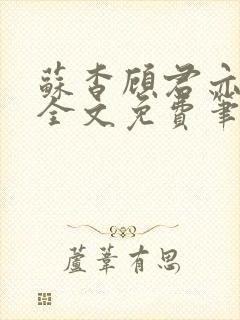 蘇杳顧君亦
全文免費筆
蘆葦有思